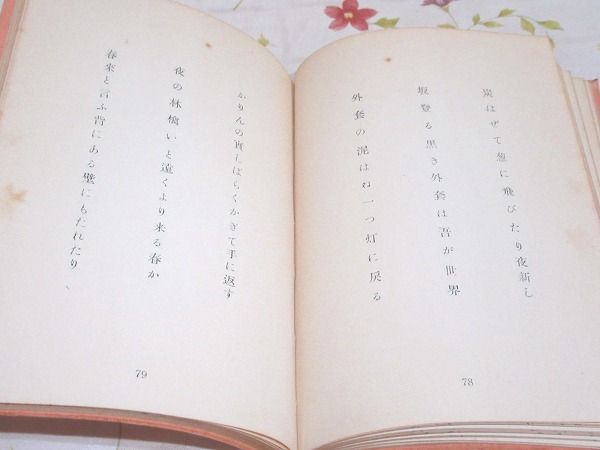 炭はぜて葱に飛びたり夜新し
坂登る黒き外套は吾が世界
外套の泥はね一つ灯に戻る
78
かりんの實しばらくかぎて手に返す
夜の林檎いと遠くより来る春か
春来と言ふ背にある壁にもたれたり
79